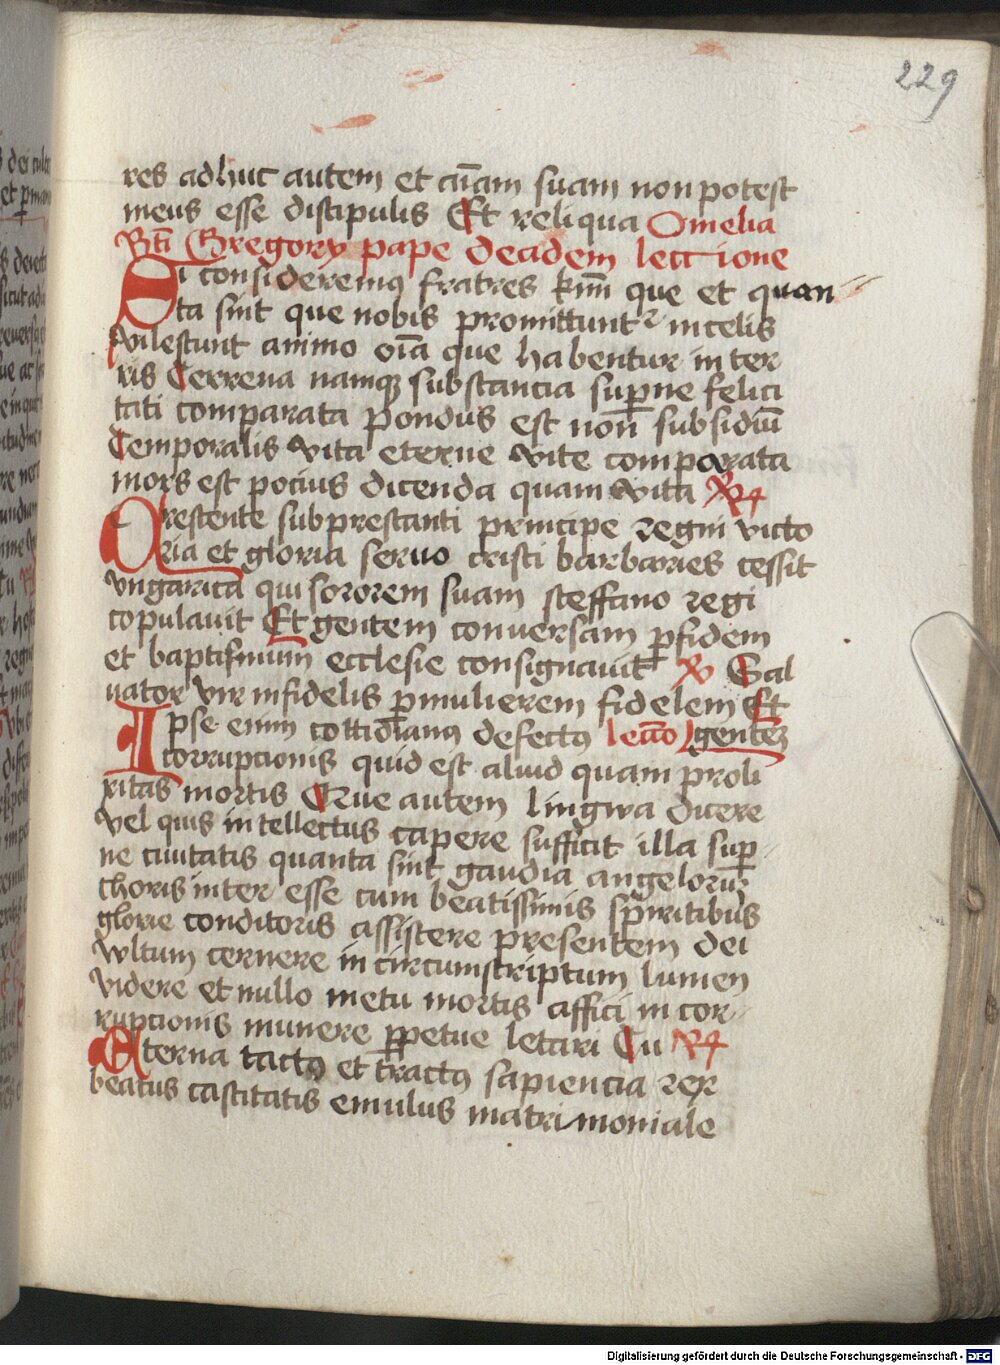 229
res adhuc autem et aīam suam non potest
meus esse discipulus Et reliqua Omelia
Bti Gregory pape de eadem lectione
Si consideremus fratres kmi que et quan
ta sint que nobis promittuntur in celis
vilescunt animo oīa que habentur in ter
ris Terrena namque substancia supne felici
tati comparata pondus est non subsidiū
Temporalis vita eterne vite comparata
mors est pocius dicenda quam vita R
Crescente sub prestanti principe regni victo
ria et gloria servo cristi barbaries cessit
vngarica qui sororem suam steffano regi
copulauit Et gentem conversam p fidem
et baptismum ecclesie consignauit V Sal
uator vir infidelis p mulierem fidelem Et
Ipse enim cottidianus defectus lectio gentem
corrupcionis quid est aliud quam proli
xitas mortis Que autem lingwa dicere
vel quis intellectus capere sufficit illa sup
ne ciuitatis quanta sint gaudia angelorum
choris inter esse cum beatissimis spiritibus
glorie conditoris assistere presentem dei
wltum cernere in circumscriptum lumen
videre et nullo metu mortis affici in cor
rupcionis munere ppetue letari Tu R
Eterna tactus et tractus sapiencia rex
beatus castitatis emulus matrimoniale
Digitalisierung gefördert durch die Deutsche Forschungsgemeinschaft - DFG